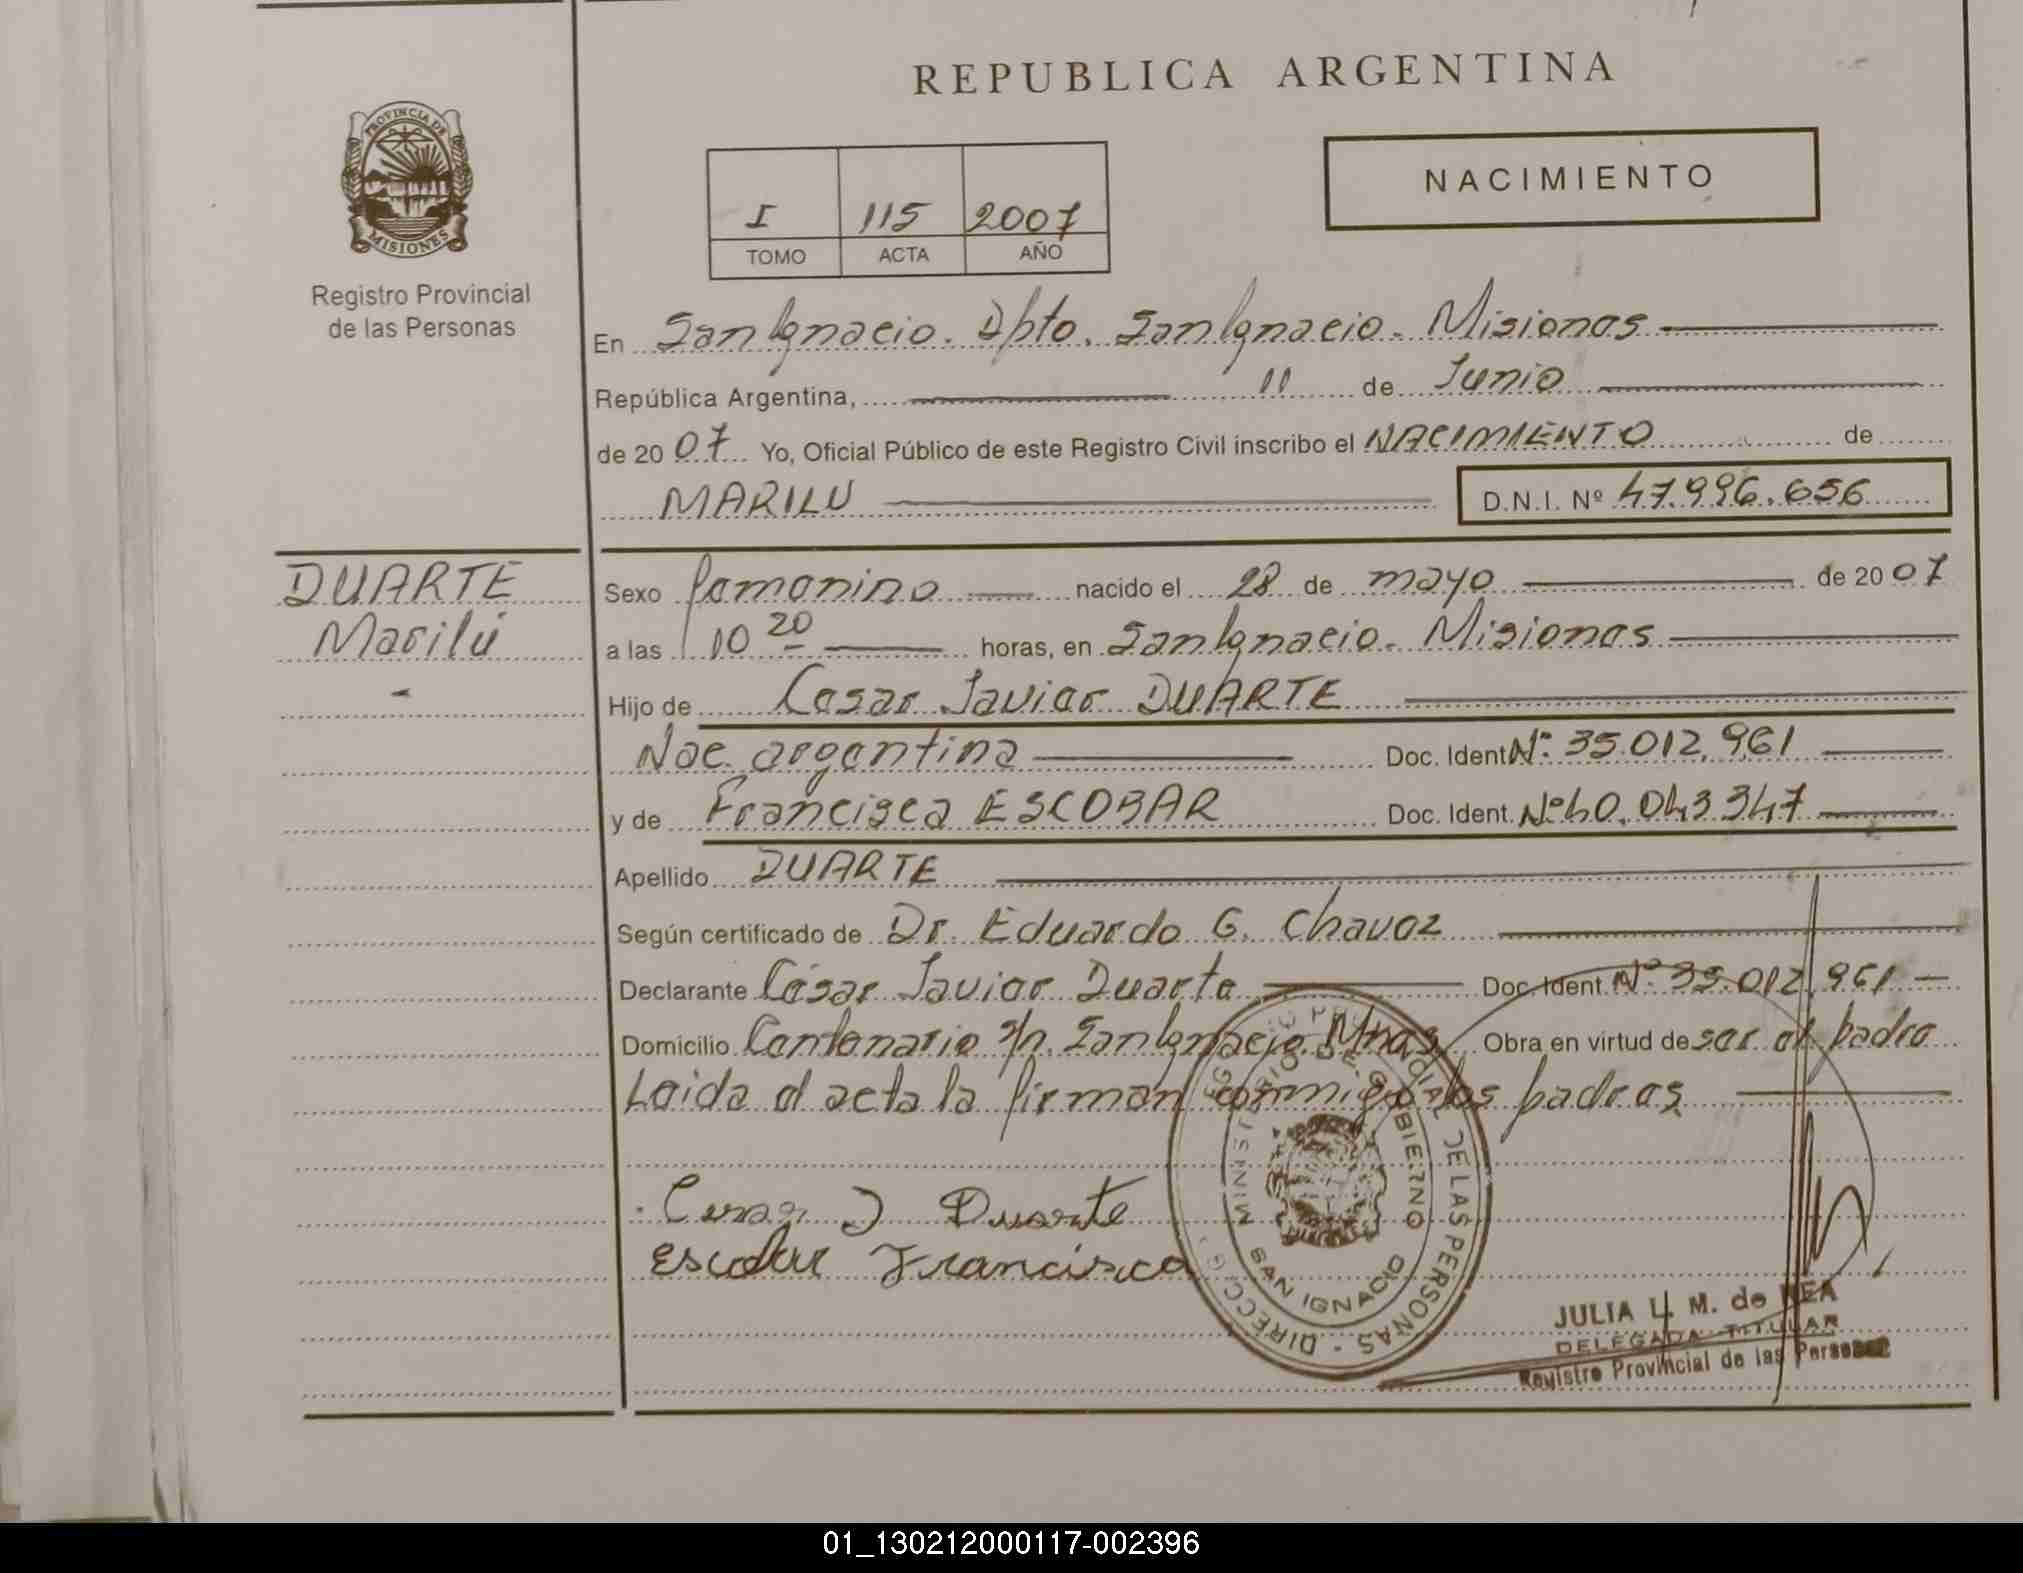 REPUBLICA ARGENTINA
PROVINCIA DE
MISIONES
Registro Provincial
de las Personas
NACIMIENTO
I 115 2007
TOMO ACTA AÑO
En San Ignacio. Dpto. San Ignacio. Misiones
República Argentina, 11 de Junio
de 2007 Yo, Oficial Público de este Registro Civil inscribo el NACIMIENTO de
MARILU D.N.I. Nº 47.996.656
DUARTE
Marilú
Sexo femenino nacido el 28 de mayo de 2007
a las 10 20 horas, en San Ignacio. Misiones
Hijo de Cesar Javier DUARTE
Nac. argentina Doc. Ident Nº 35.012.961
y de Francisca ESCOBAR Doc. Ident. Nº 40.043.347
Apellido DUARTE
Según certificado de Dr. Eduardo G. Chavez
Declarante César Javier Duarte Doc. Ident. Nº 35.012.961
Domicilio Centenario s/n. San Ignacio. Mnes. Obra en virtud de ser el padre
Leida el acta la firman conmigo los padres
Cesar J Duarte
Escobar Francisca
MINISTERIO DE GOBIERNO
DE LAS PERSONAS
SAN IGNACIO
JULIA M. de
DELEGADA TITULAR
Registro Provincial de las Personas
01_130212000117-002396